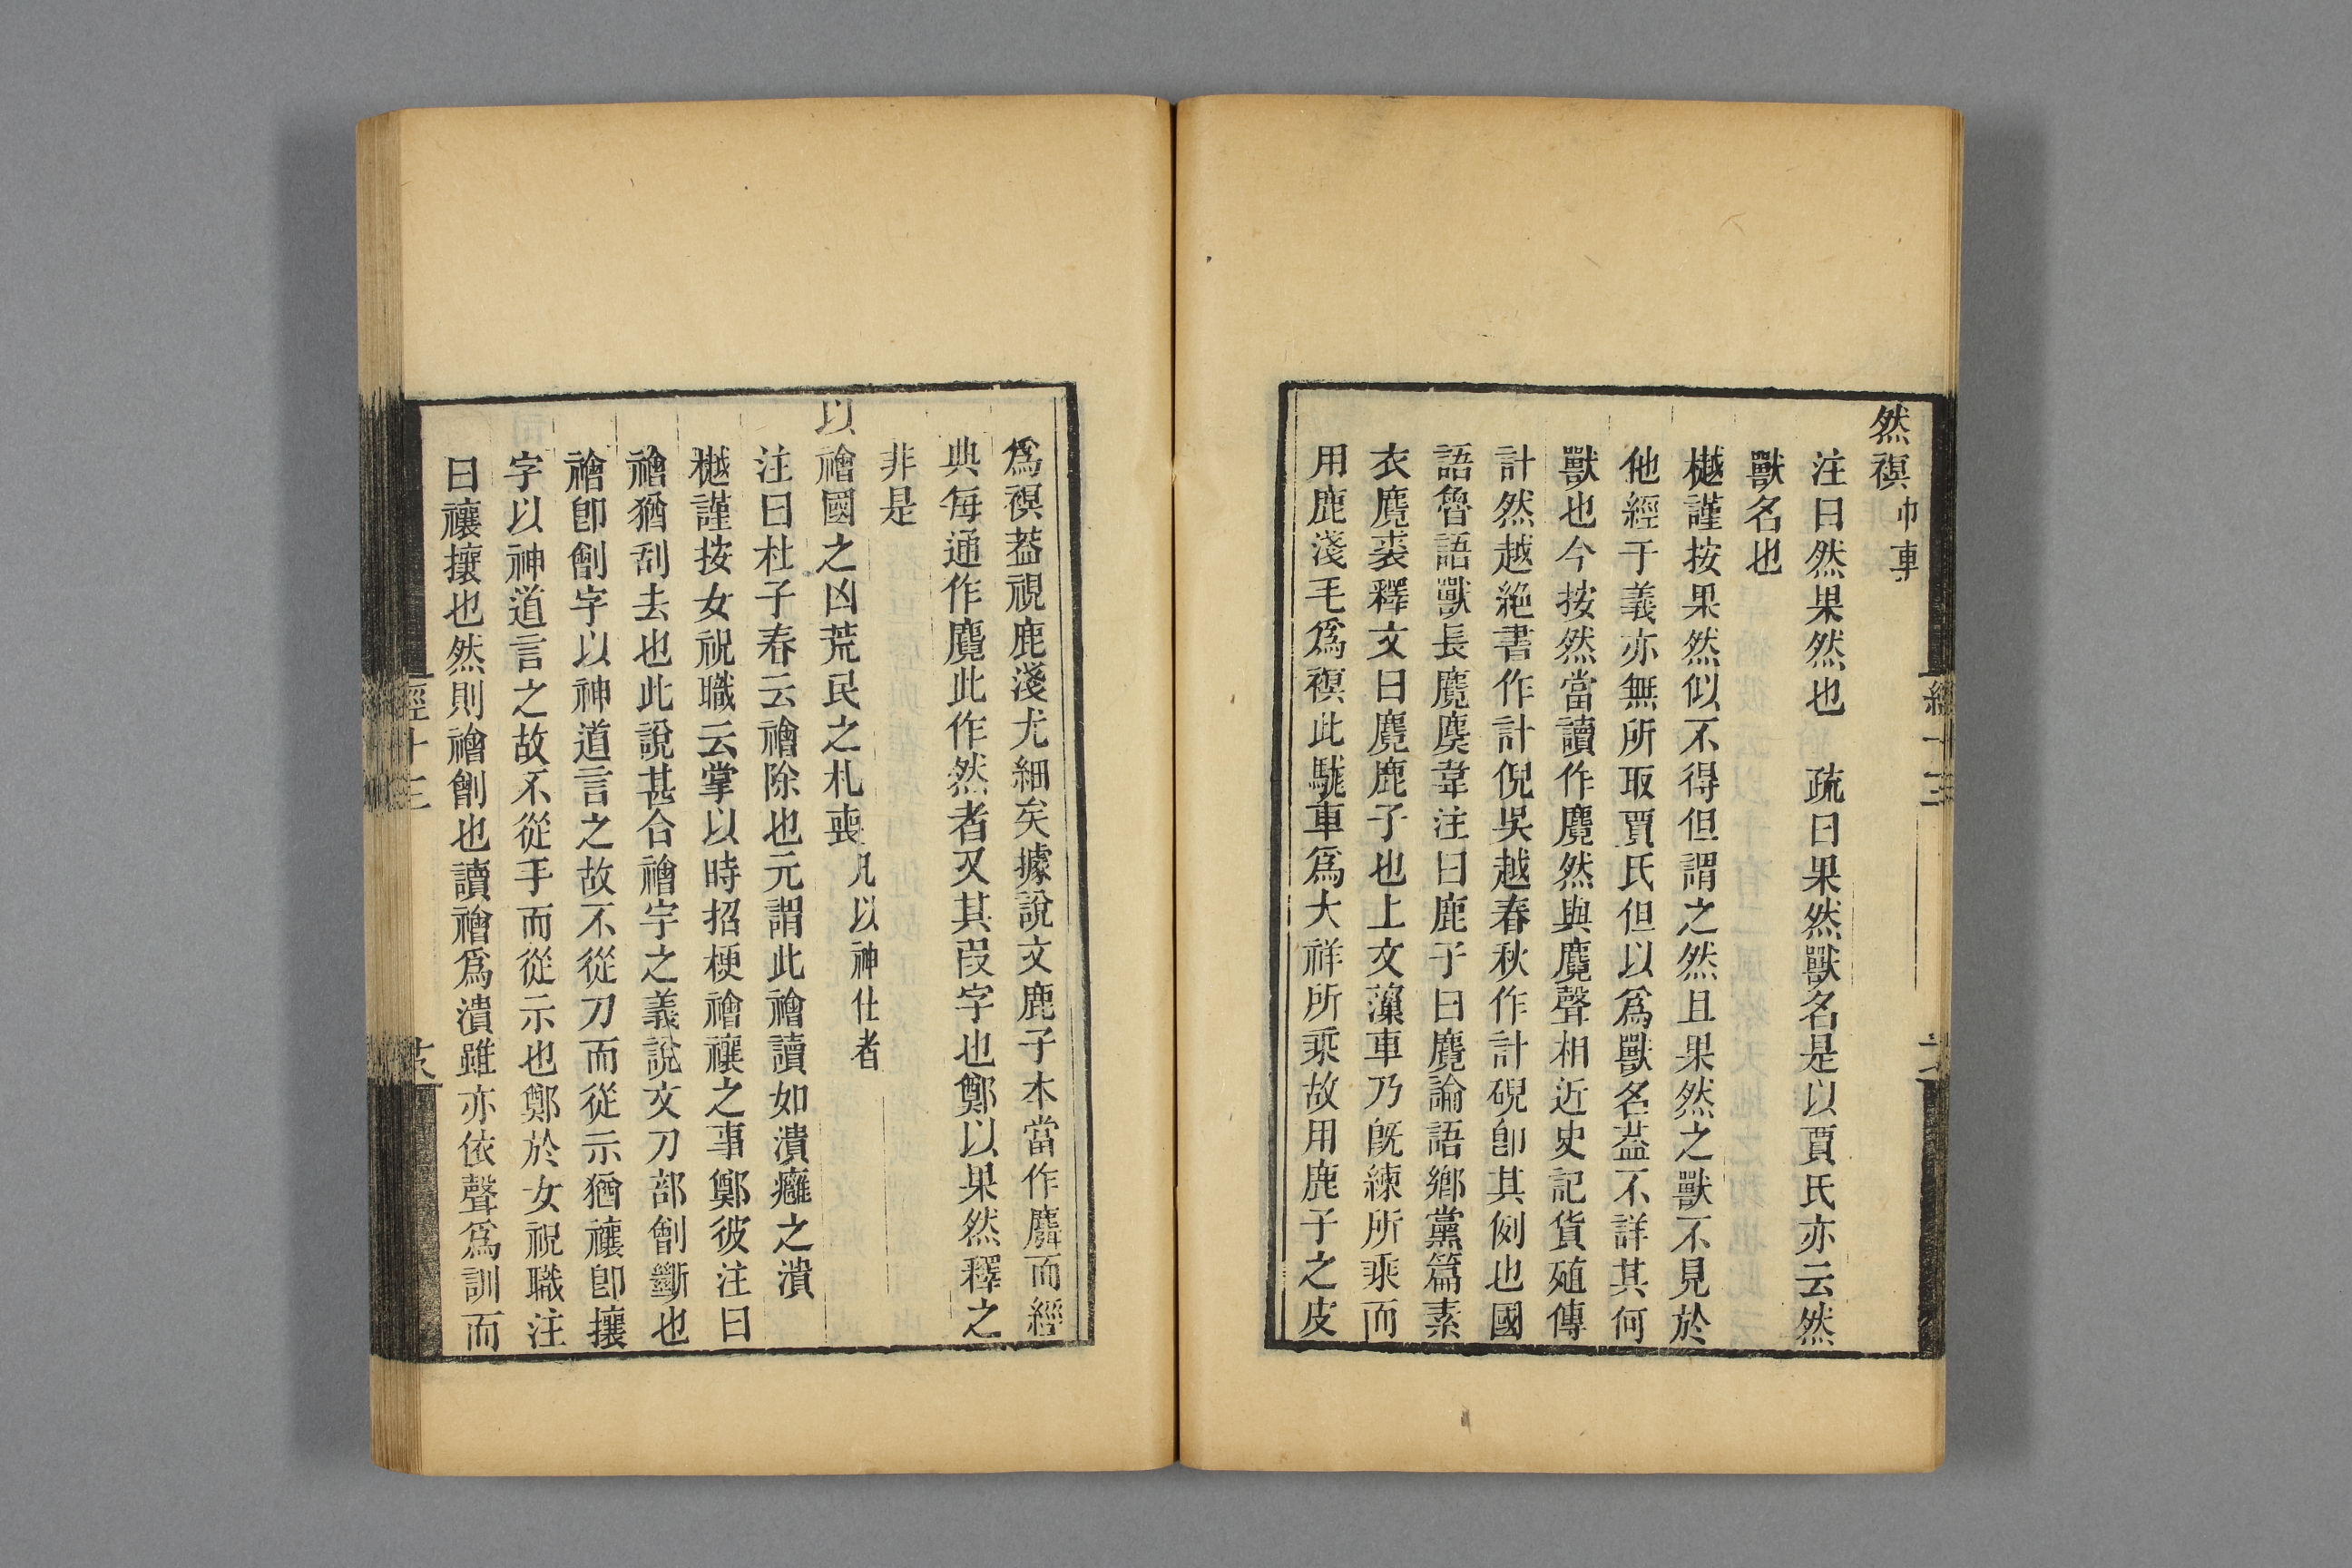 然𧜀巾車
注曰然果然也 疏曰果然獸名是以賈氏亦云然
獸名也
樾謹按果然似不得但謂之然且果然之獸不見於
他經于義亦無所取賈氏但以爲獸名葢不詳其何
獸也今按然當讀作麑然與麑聲相近史記貨殖傳
計然越絶書作計倪吳越春秋作計硯卽其例也國
語魯語獸長麑䴠韋注曰鹿子曰麑論語鄉黨篇素
衣麑裘釋文曰麑鹿子也上文薻車乃旣練所乘而
用鹿淺毛爲𧜀此駹車爲大祥所乘故用鹿子之皮
爲𧜀葢視鹿淺尤細矣據說文鹿子本當作麛而經
典每通作麑此作然者又其叚字也鄭以果然釋之
非是
以禬國之凶荒民之札喪凡以神仕者
注曰杜子春云禬除也元謂此禬讀如潰癰之潰
樾謹按女祝職云掌以時招梗禬禳之事鄭彼注曰
禬猶刮去也此說甚合禬字之義說文刀部劊斷也
禬卽劊字以神道言之故不從刀而從示猶禳卽攘
字以神道言之故不從手而從示也鄭於女祝職注
曰禳攘也然則禬劊也讀禬爲潰雖亦依聲爲訓而
經十三